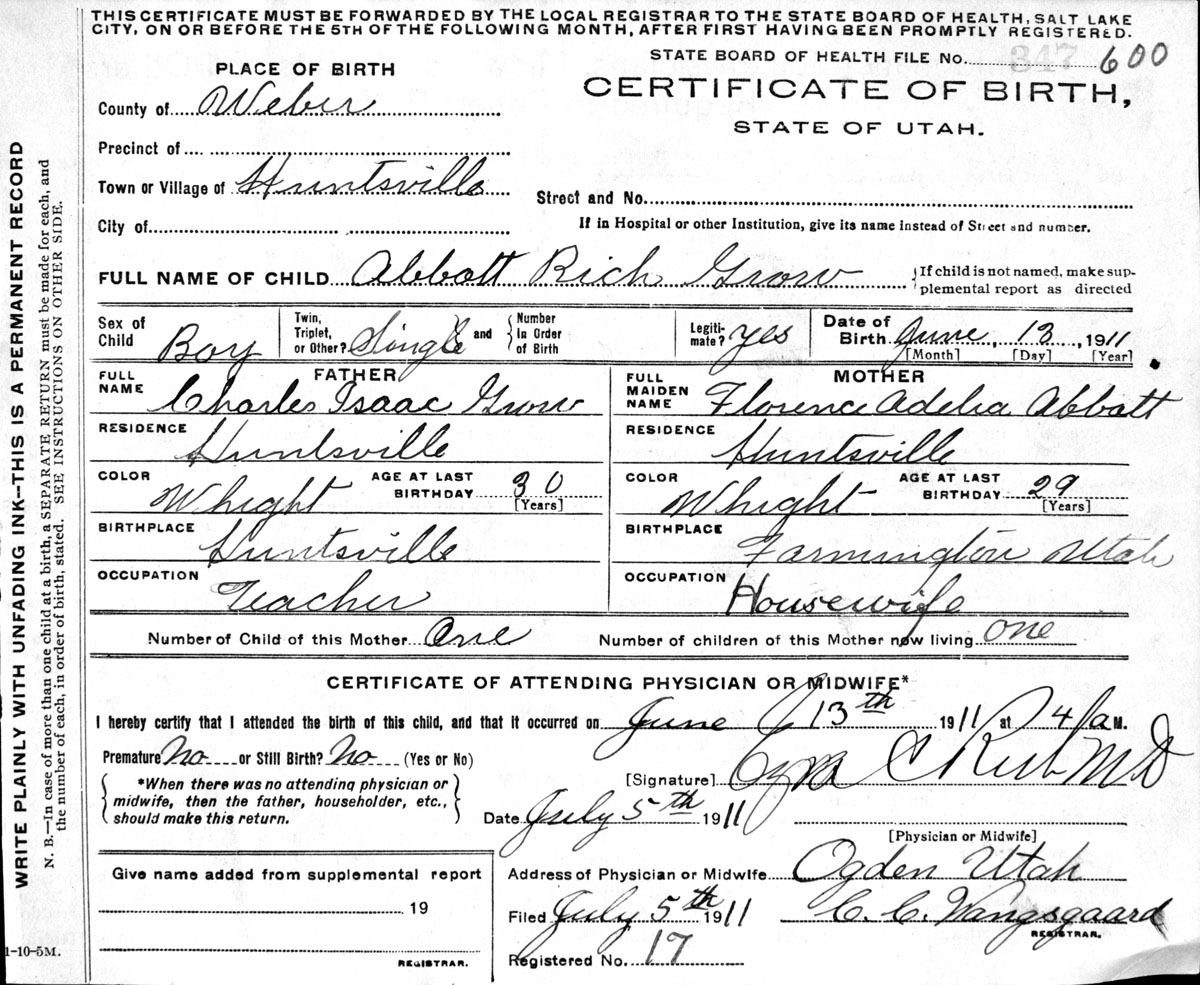 THIS CERTIFICATE MUST BE FORWARDED BY THE LOCAL REGISTRAR TO THE STATE BOARD OF HEALTH, SALT LAKE
CITY, ON OR BEFORE THE 5TH OF THE FOLLOWING MONTH, AFTER FIRST HAVING BEEN PROMPTLY REGISTERED.
STATE BOARD OF HEALTH FILE NO. 347 600
PLACE OF BIRTH
CERTIFICATE OF BIRTH,
County of Weber
STATE OF UTAH.
Precinct of
Town or Village of Huntsville
Street and No.
City of
If in Hospital or other Institution, give its name instead of Street and number.
FULL NAME OF CHILD Abbott Rich Grow
If child is not named, make sup-
plemental report as directed
Sex of Child Boy
Twin, Triplet, or Other? Single and Number in Order of Birth
Legiti-mate? yes
Date of Birth June, 13, 1911
[Month] [Day] [Year]
FATHER
FULL NAME Charles Isaac Grow
RESIDENCE Huntsville
COLOR Whight AGE AT LAST BIRTHDAY 30 [Years]
BIRTHPLACE Huntsville
OCCUPATION Teacher
MOTHER
FULL MAIDEN NAME Florence Adelia Abbott
RESIDENCE Huntsville
COLOR Whight AGE AT LAST BIRTHDAY 29 [Years]
BIRTHPLACE Farmington Utah
OCCUPATION Housewife
Number of Child of this Mother One Number of children of this Mother now living one
CERTIFICATE OF ATTENDING PHYSICIAN OR MIDWIFE*
I hereby certify that I attended the birth of this child, and that it occurred on June 13th 1911 at 4 a M.
Premature No or Still Birth? No (Yes or No)
[Signature] Ezra C Rich M D
*When there was no attending physician or
midwife, then the father, householder, etc.,
should make this return.
Date July 5th 1911
[Physician or Midwife]
Give name added from supplemental report
19
REGISTRAR.
Address of Physician or Midwife Ogden Utah
Filed July 5th 1911 C. C. Wangsgaard
REGISTRAR.
Registered No. 17
1-10-5M.
WRITE PLAINLY WITH UNFADING INK—THIS IS A PERMANENT RECORD
N. B.—In case of more than one child at a birth, a SEPARATE RETURN must be made for each, and
the number of each, in order of birth, stated. SEE INSTRUCTIONS ON OTHER SIDE.